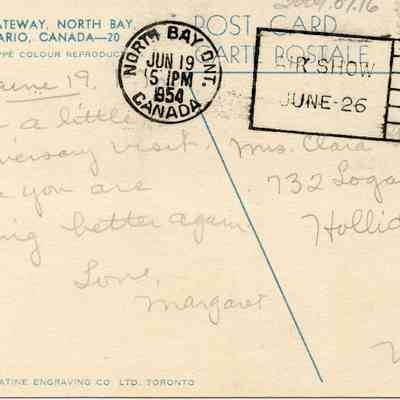 2009.07.16
ATEWAY, NORTH BAY,
ARIO, CANADA—20
POST CARD
CARTE POSTALE
NORTH BAY ONT.
JUN 19
5 PM
1954
CANADA
AIR SHOW
JUNE-26
June 19.
a little
versary visit.
you are
ing better again
Love,
Margaret
Mrs. Clara
732 Loga
Hollid
ATINE ENGRAVING CO. LTD. TORONTO